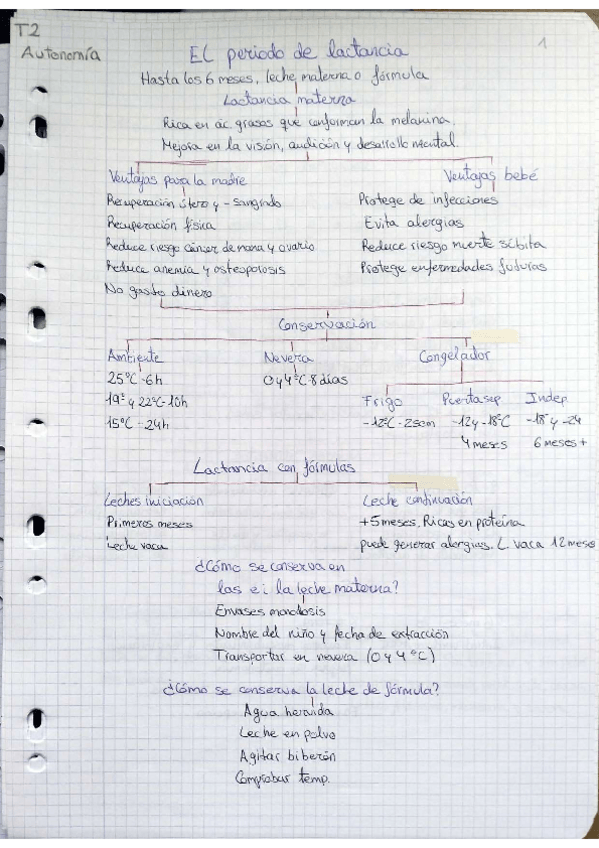 T2
Autonomía
1
EL periodo de lactancia
Hasta los 6 meses, leche materna o fórmula
Lactancia materna
Rica en ác. grasos que conforman la melanina.
Mejora en la visión, audición y desarrollo mental.
Ventajas para la madre
Ventajas bebé
Recuperación útero y - sangrado
Protege de infecciones
Recuperación física
Evita alergias
Reduce riesgo cáncer de mama y ovario
Reduce riesgo muerte súbita
Reduce anemia y osteoporosis
Protege enfermedades futuras
No gasto dinero
Conservación
Ambiente
Nevera
Congelador
25ºC-6h
0 y 4ºC-8 días
19º y 22ºC-10h
15ºC-24h
Frigo
Puerta sep
Indep
-12ºC-2sem
-12 y -18ºC
-18º y -24
4 meses
6 meses +
Lactancia con fórmulas
Leches iniciación
Leche continuación
Primeros meses
+5 meses, Ricas en proteína
Leche vaca
puede generar alergias. L. vaca 12 meses
¿Cómo se conserva en
las e.i la leche materna?
Envases monodosis
Nombre del niño y fecha de extracción
Transportar en nevera (0 y 4ºC)
¿Cómo se conserva la leche de fórmula?
Agua hervida
Leche en polvo
Agitar biberón
Comprobar temp.